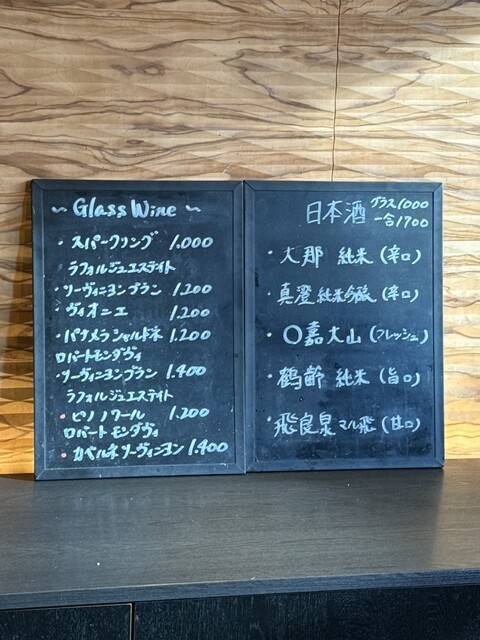 ~ Glass Wine ~
・スパークリング 1.000
ラフォルジュエステイト
・ソーヴィニヨンブラン 1.200
・ヴィオニエ 1.200
・パナメラシャルドネ 1.200
ロバートモンダヴィ
・ソーヴィニヨンブラン 1.400
ラフォルジュエステイト
・ピノ ノワール 1.200
ロバートモンダヴィ
・カベルネソーヴィニヨン 1.400
日本酒 グラス1000
一合1700
・大那 純米 (辛口)
・真澄 純米吟醸 (辛口)
・〇嘉大山 (フレッシュ)
・鶴齢 純米 (旨口)
・飛良泉 マル飛 (甘口)